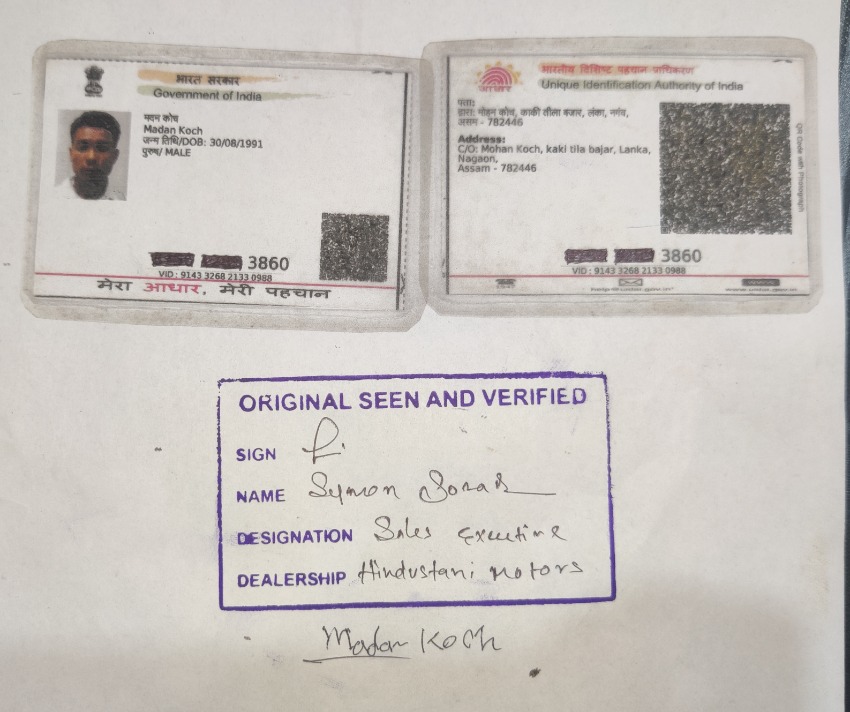 भारत सरकार
Government of India
मदन कोच
Madan Koch
जन्म तिथि/DOB: 30/08/1991
पुरुष/ MALE
3860
VID : 9143 3268 2133 0988
मेरा आधार, मेरी पहचान
भारतीय विशिष्ट पहचान प्राधिकरण
Unique Identification Authority of India
पता:
द्वारा: मोहन कोच, काकी तीला बजार, लंका, नगांव,
असम - 782446
Address:
C/O: Mohan Koch, kaki tila bajar, Lanka,
Nagaon,
Assam - 782446
QR Code with Photograph
3860
VID : 9143 3268 2133 0988
ORIGINAL SEEN AND VERIFIED
SIGN
NAME Symon
DESIGNATION Sales Executive
DEALERSHIP Hindustani Motors
Madan Koch